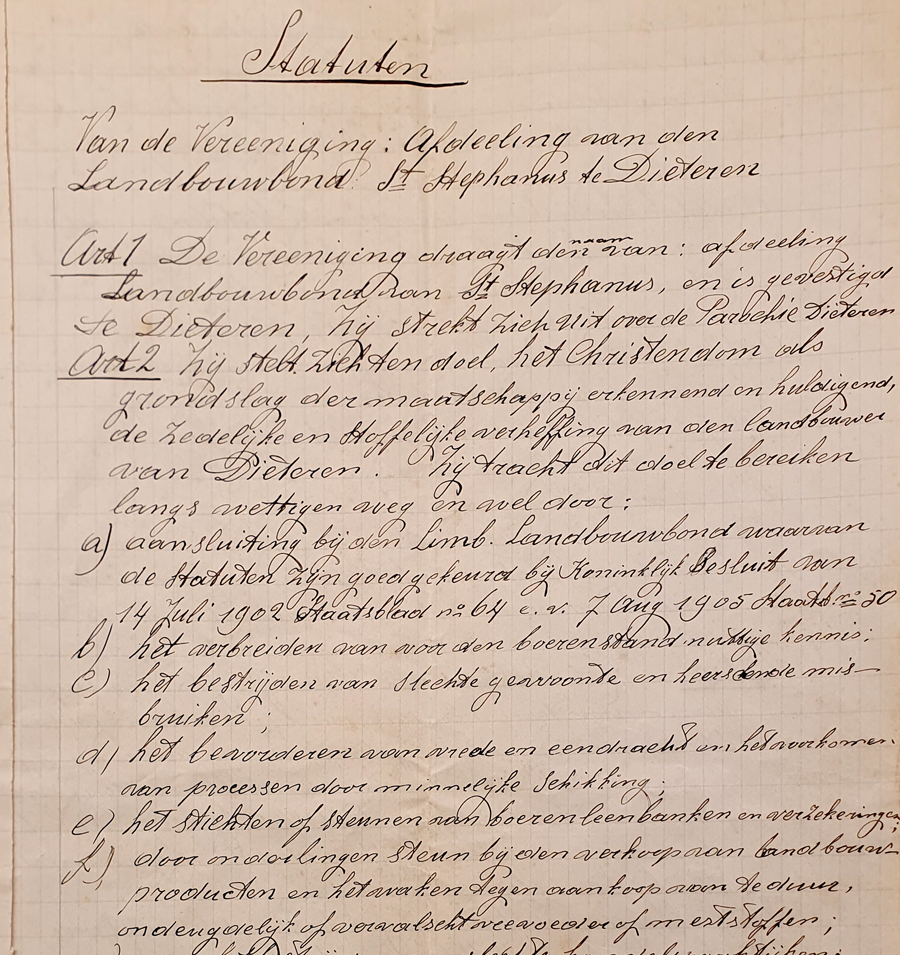 Statuten
Van de Vereeniging: Afdeeling van den
Landbouwbond St Stephanus te Dieteren
Art 1 De Vereeniging draagt den naam van: afdeeling
Landbouwbond van St Stephanus, en is gevestigd
te Dieteren, Zij strekt zich uit over de Parochie Dieteren
Art 2 Zij stelt zich ten doel, het Christendom als
grondslag der maatschappij erkennend en huldigend,
de zedelijke en stoffelijke verheffing van den landbouwer
van Dieteren. Zij tracht dit doel te bereiken
langs wettigen weg en wel door:
a) aansluiting bij den Limb. Landbouwbond waarvan
de Statuten zijn goedgekeurd bij Koninklijk Besluit van
14 Juli 1902 Staatsblad no 64 e. v. 7 Aug 1905 Staatsb. no 50
b) het verbreiden van voor den boerenstand nuttige kennis;
c) het bestrijden van slechte gewoonte en heerschende mis-
bruiken;
d) het bevorderen van vrede en eendracht en het voorkomen
van processen door minnelijke schikking;
e) het stichten of steunen van boerenleenbanken en verzekeringen;
f) door onderlingen steun bij den verkoop van landbouw-
producten en het waken tegen aankoop van te duur,
ondeugdelijk of vervalscht veevoeder of meststoffen;